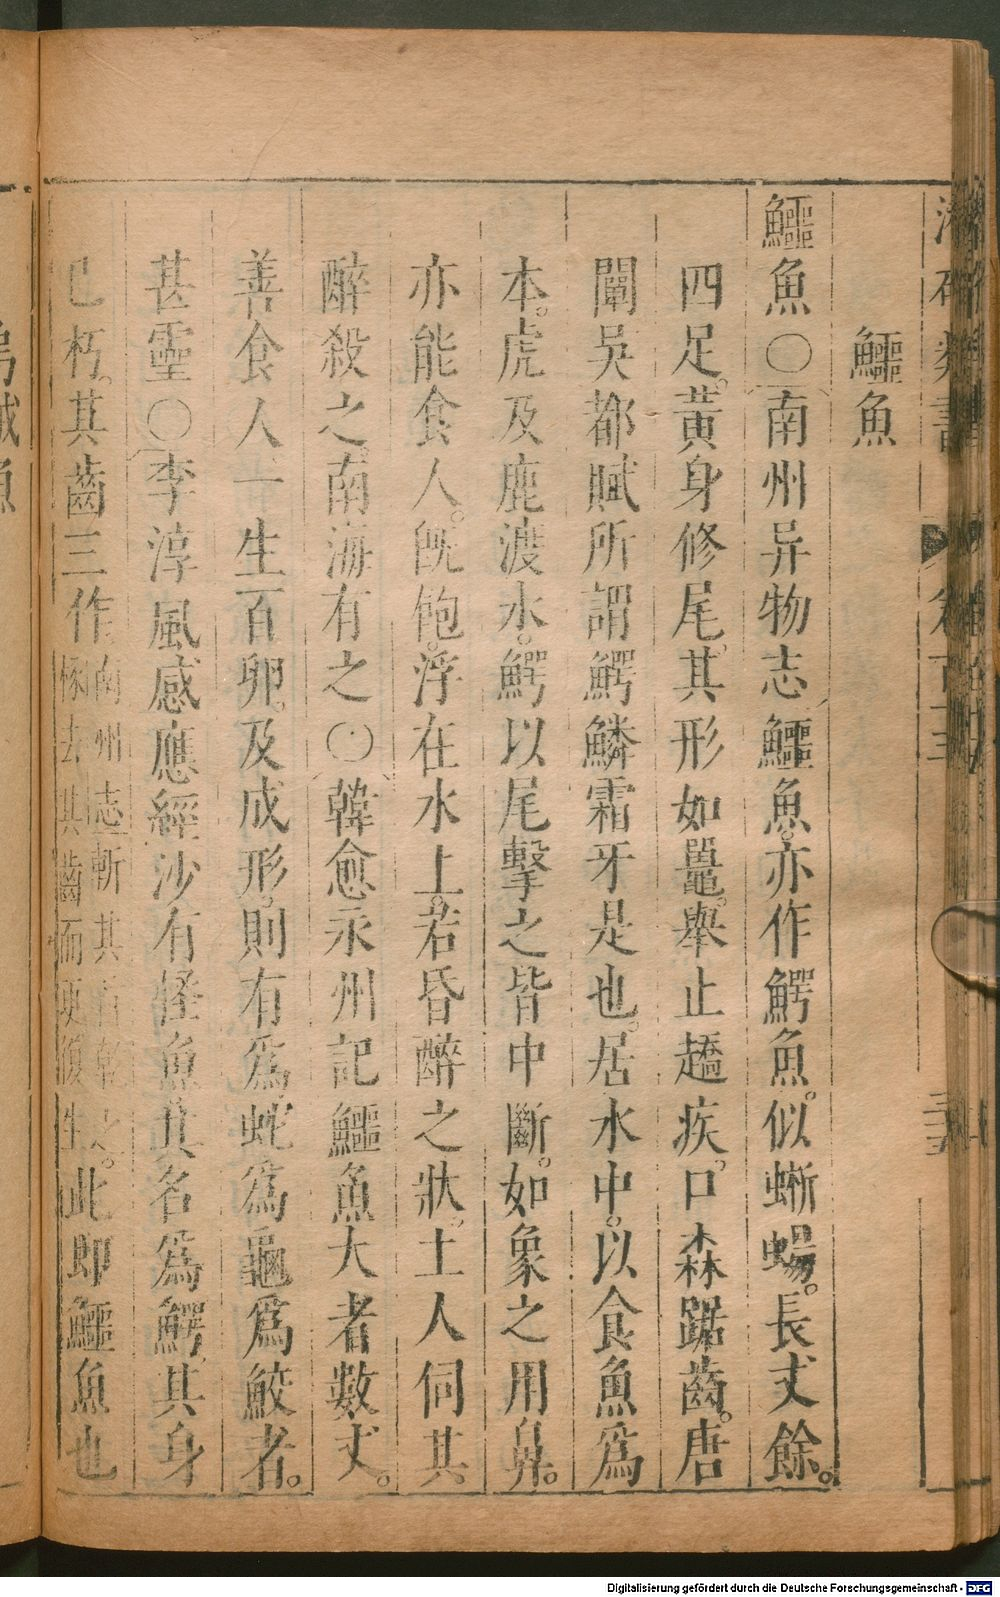 鱷魚
鱷魚〇南州异物志鱷魚亦作鰐魚似蜥蜴長丈餘
四足黃身修尾其形如鼉舉止趫疾口森踞齒唐
闈吳都賦所謂鰐鱗霜牙是也居水中以食魚爲
本虎及鹿渡水鰐以尾擊之皆中斷如象之用鼻
亦能食人旣飽浮在水上若昏醉之狀土人伺其
醉殺之南海有之〇韓愈永州記鱷魚大者數丈
善食人一生百卵及成形則有爲蛇爲龜爲鮫者
甚靈〇李淳風感應經沙有怪魚其名爲鰐其身
已朽其齒三作
南州志斬其首乾之
椓去其齒而更復生
此即鱷魚也
Digitalisierung gefördert durch die Deutsche Forschungsgemeinschaft - DFG